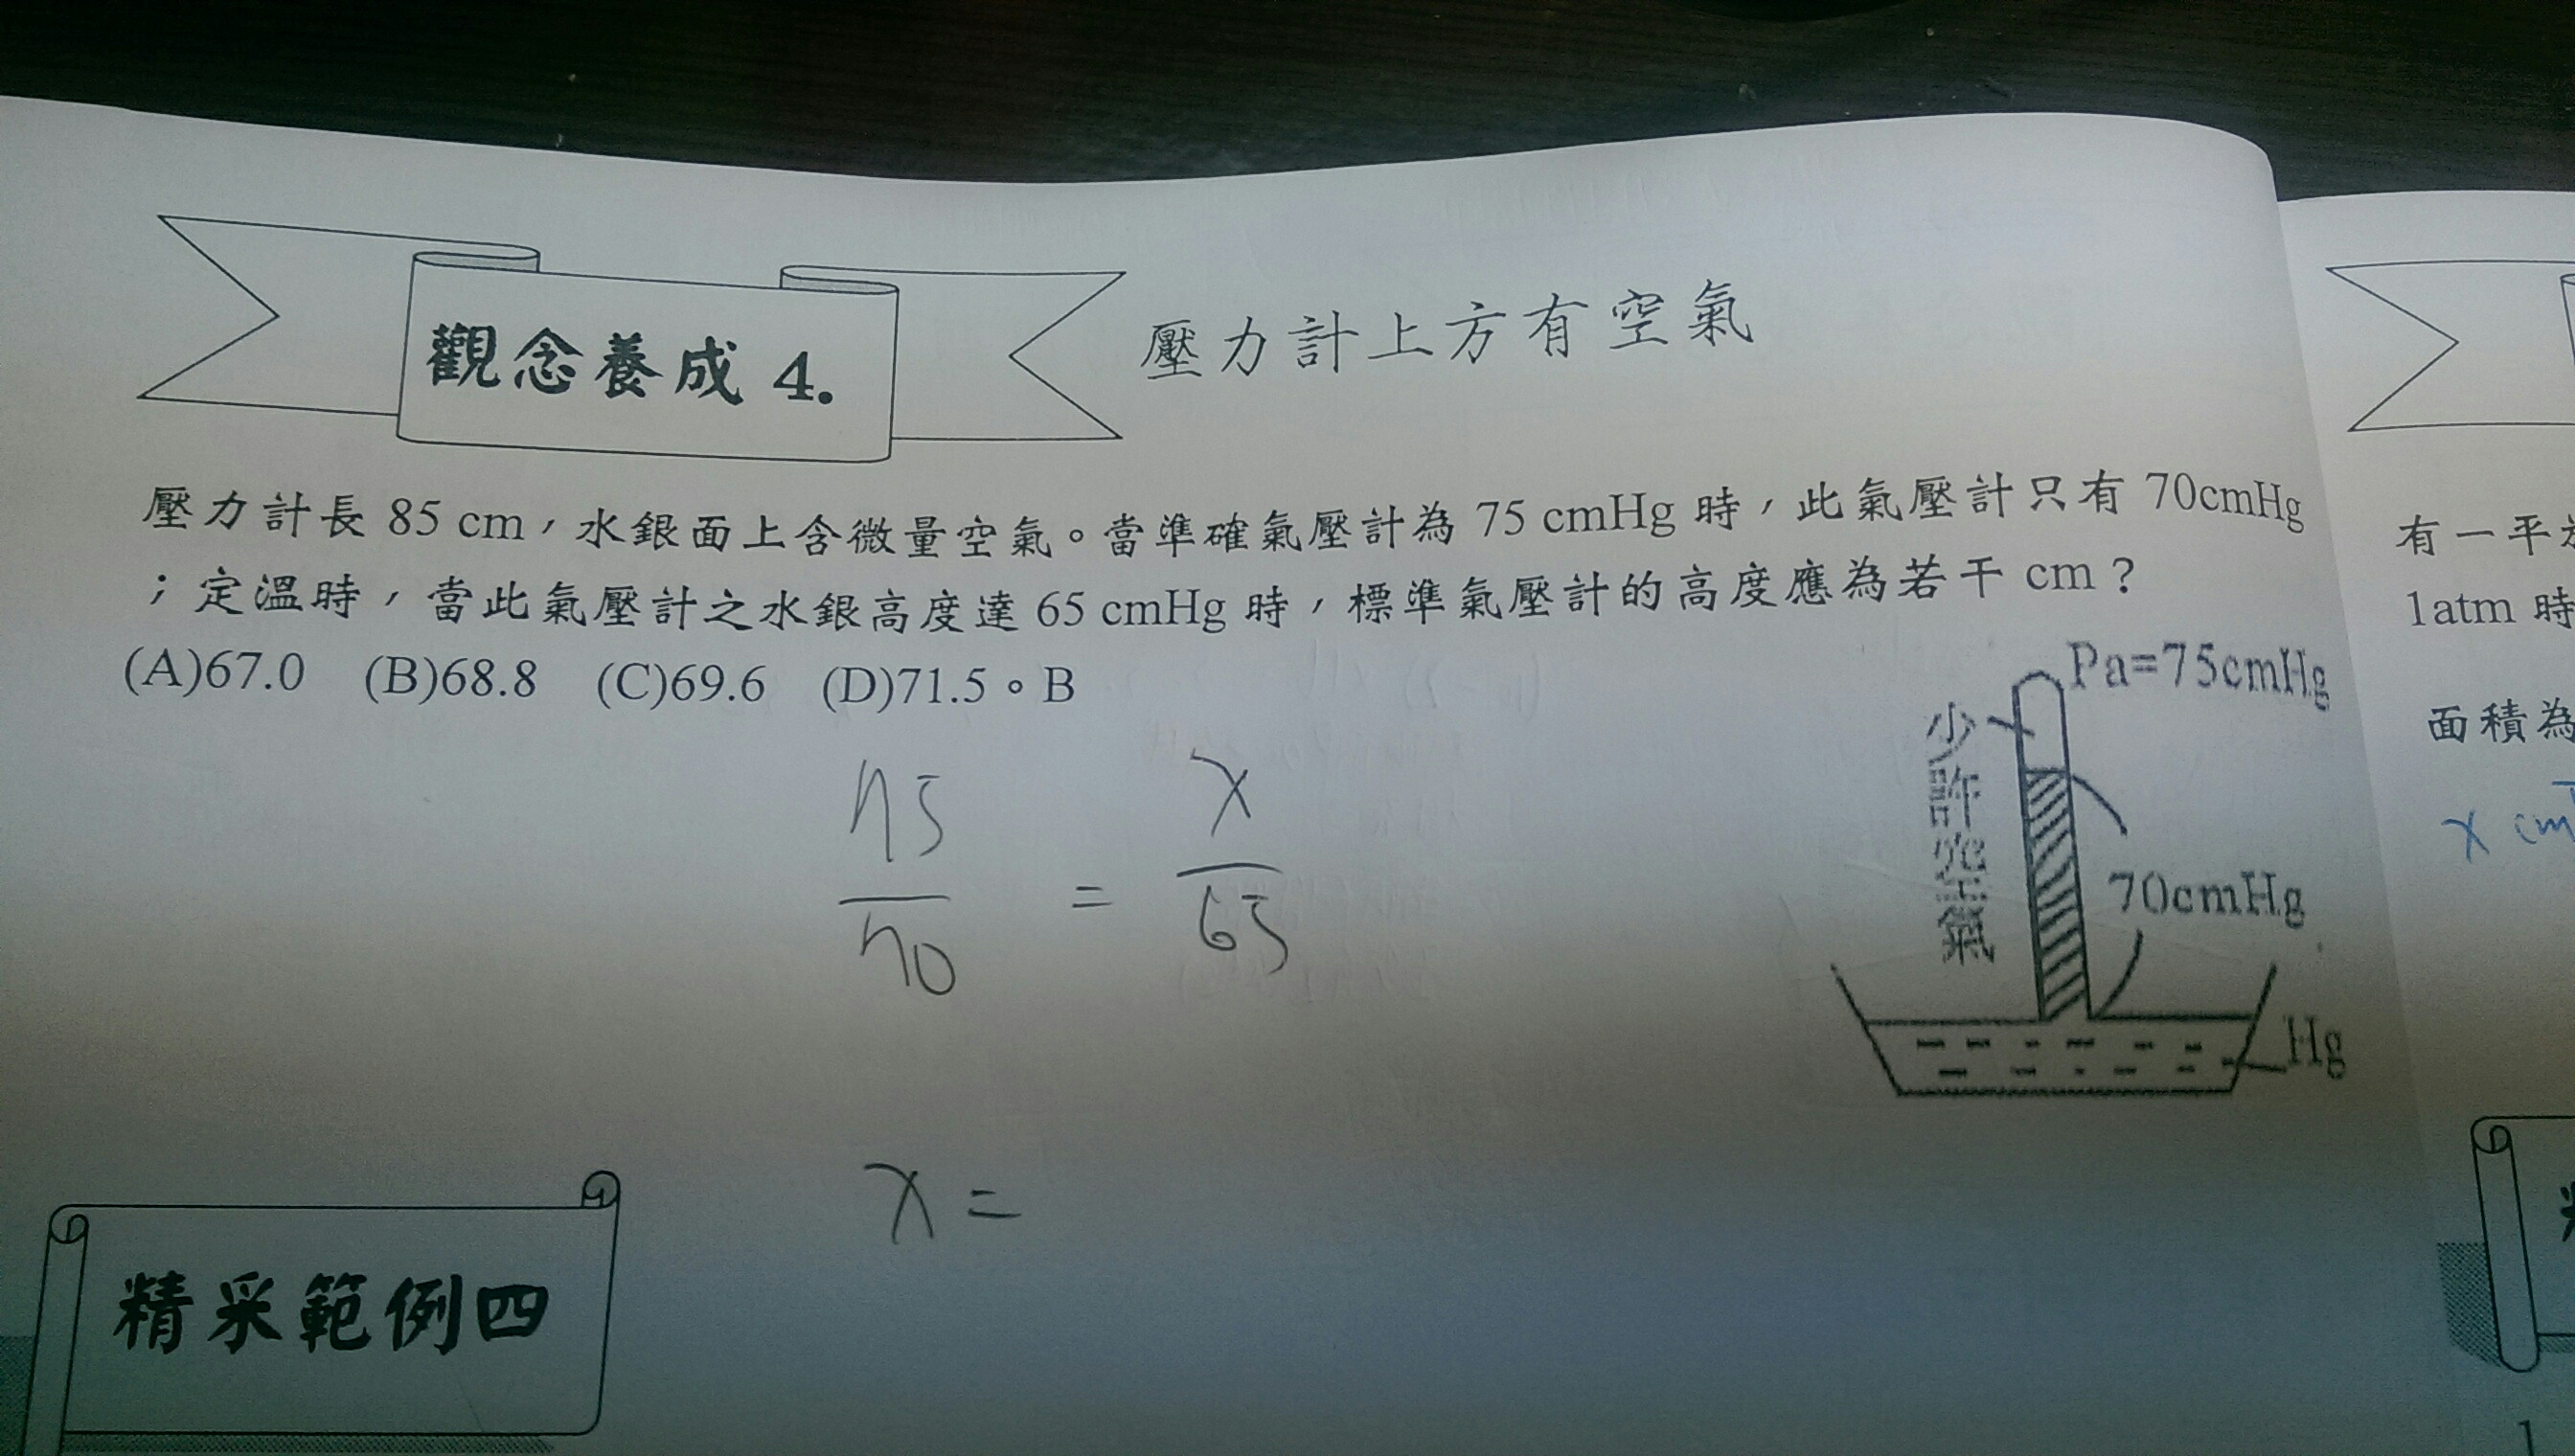 觀念養成 4.
壓力計上方有空氣
壓力計長 85 cm，水銀面上含微量空氣。當準確氣壓計為 75 cmHg 時，此氣壓計只有 70cmHg
；定溫時，當此氣壓計之水銀高度達 65 cmHg 時，標準氣壓計的高度應為若干 cm？
(A)67.0 (B)68.8 (C)69.6 (D)71.5。B
Pa=75cmHg
少許空氣
70cmHg
Hg
75/70 = x/65
x =
精采範例四
有一平
1atm 時
面積為
x cm